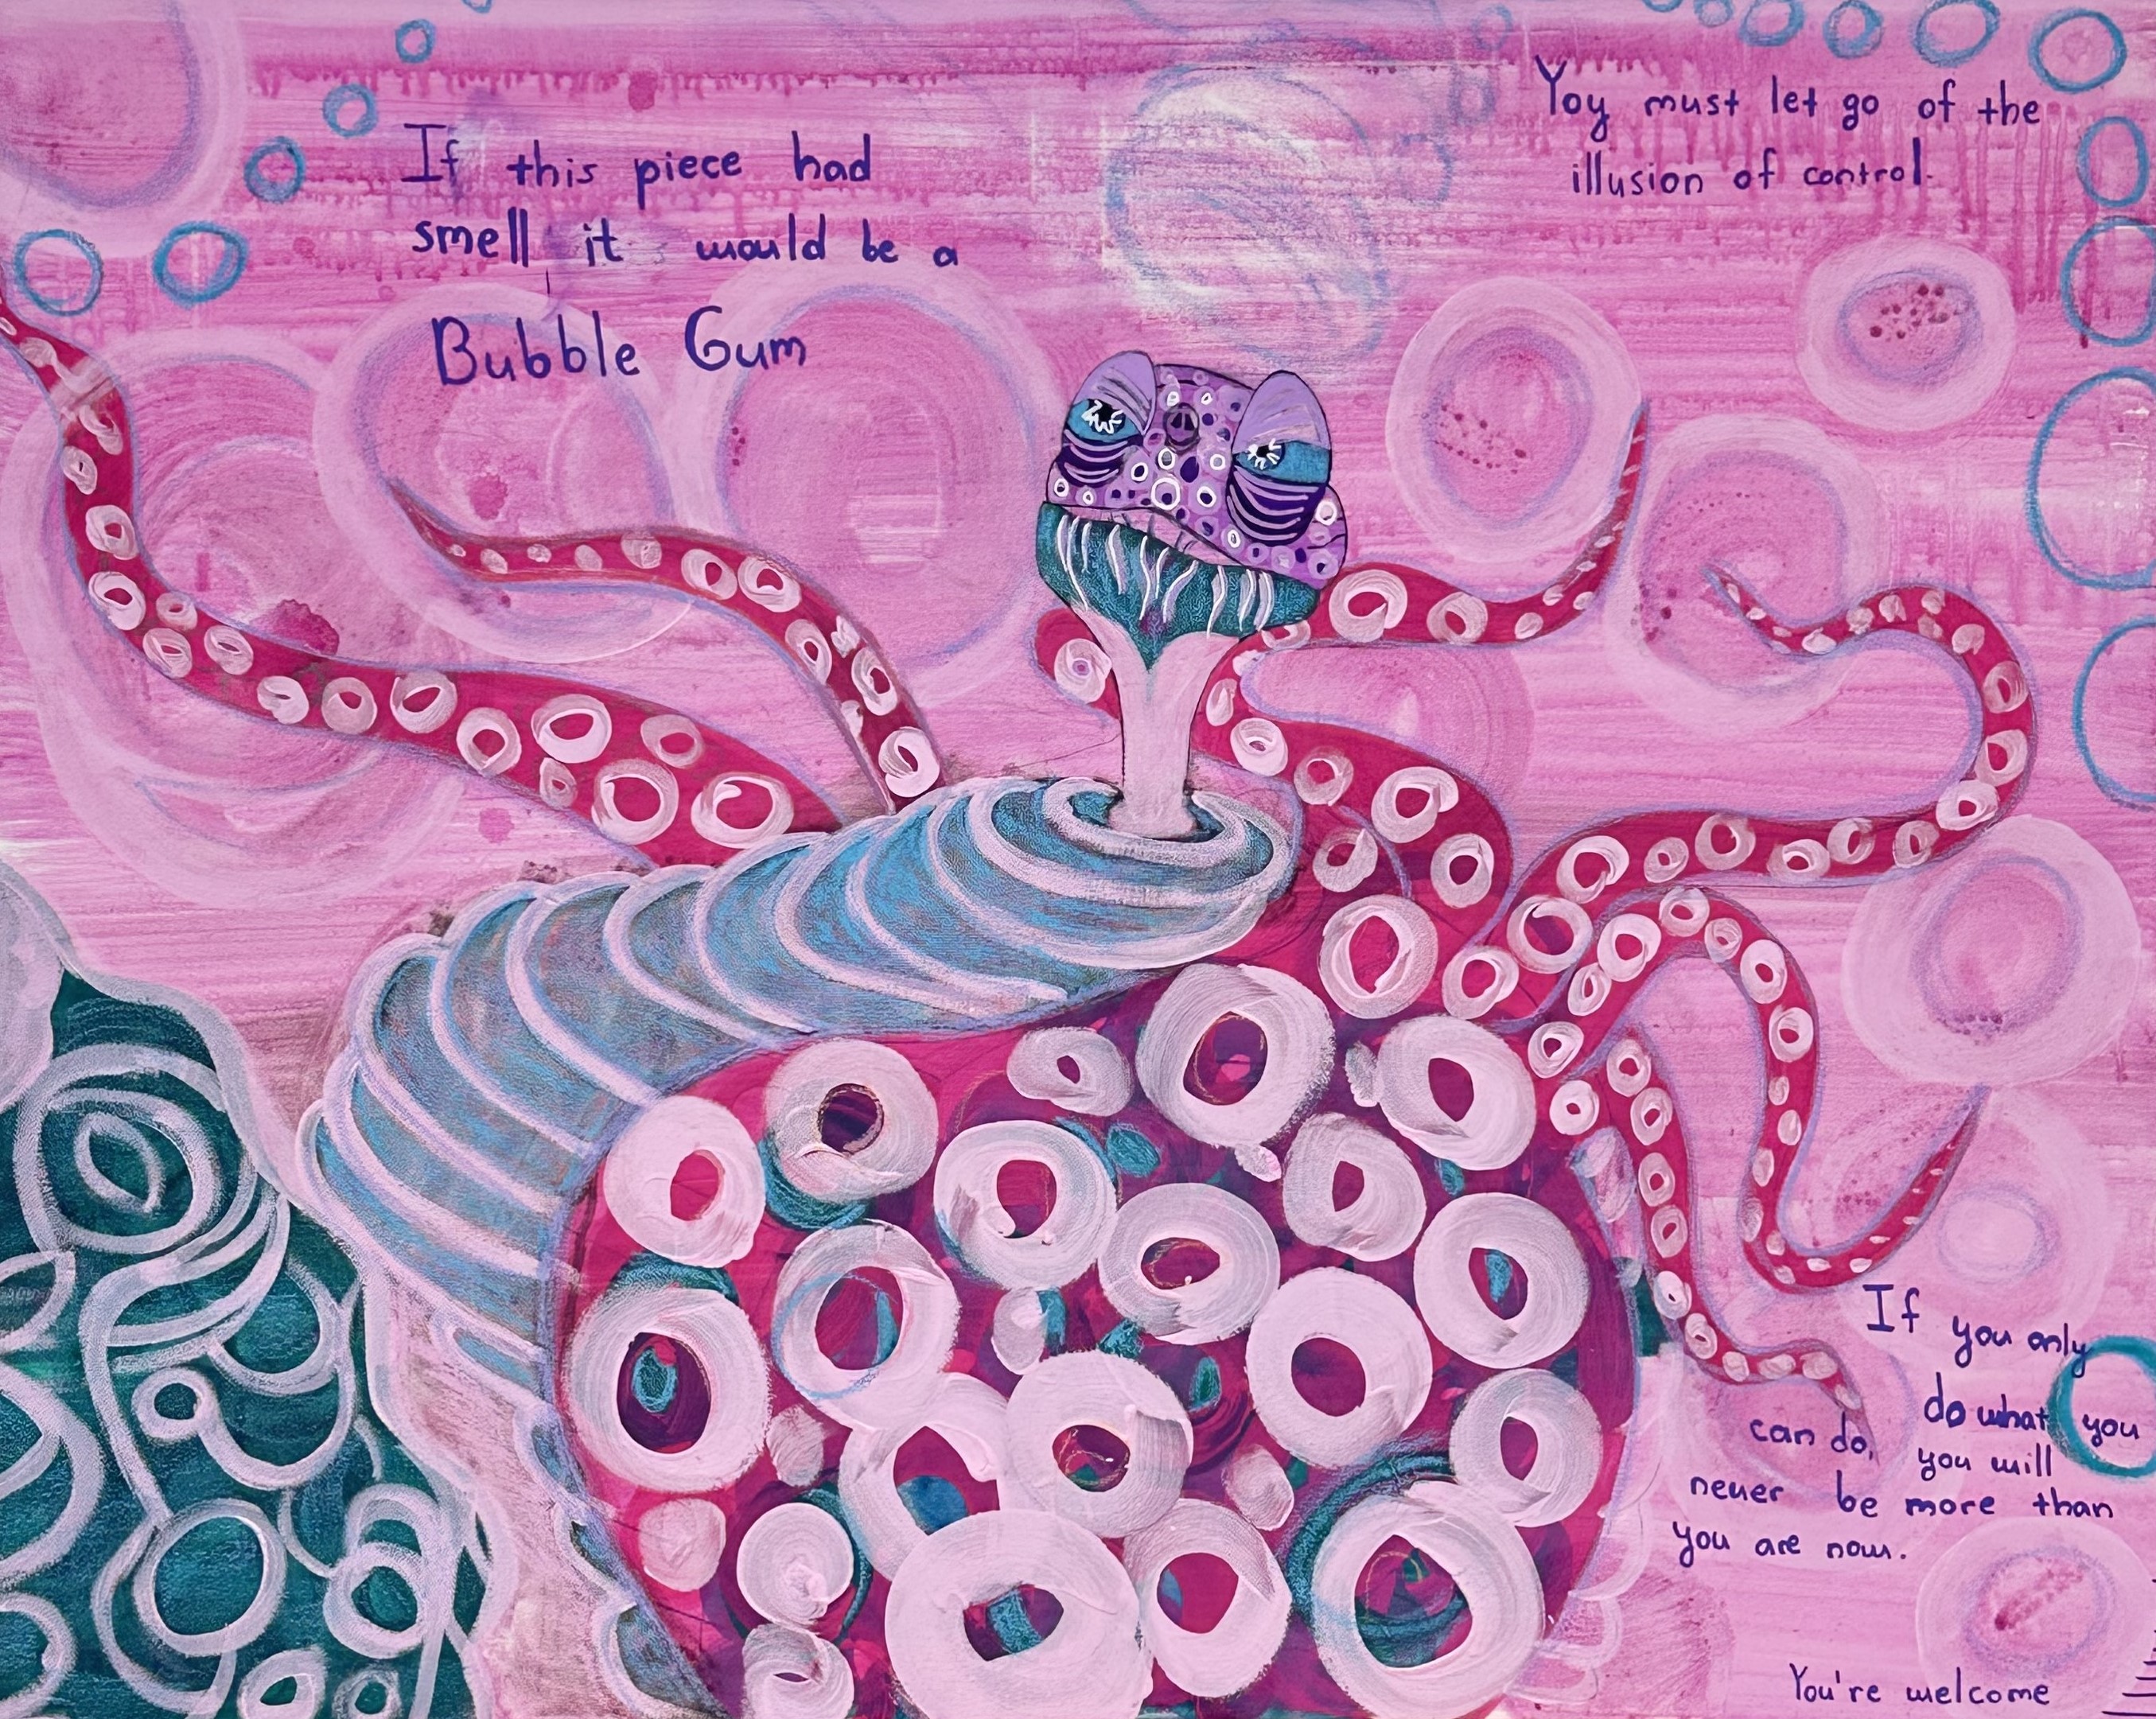 If this piece had
smell it would be a
Bubble Gum
Yoy must let go of the
illusion of control.
If you only
do what you
can do, you will
never be more than
you are now.
You're welcome